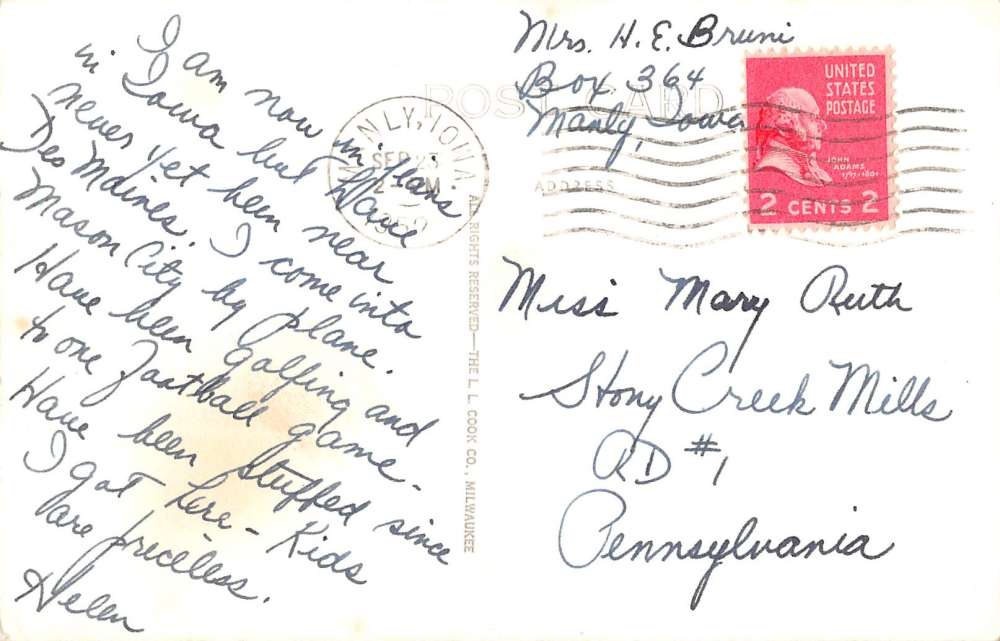 I am now in
in Iowa but have
never yet been near
Des Moines. I come into
Mason City by plane.
Have been golfing and
to one football game.
Have been stuffed since
I got here - Kids
are priceless.
Helen
MANLY, IOWA.
SEP
ALL RIGHTS RESERVED—THE L. L. COOK CO., MILWAUKEE
POST CARD
ADDRESS
Mrs. H. E. Bruni
Box 364
Manly, Iowa
UNITED
STATES
POSTAGE
JOHN
ADAMS
1797-1801
2 CENTS 2
Miss Mary Ruth
Stony Creek Mills
RD #1
Pennsylvania